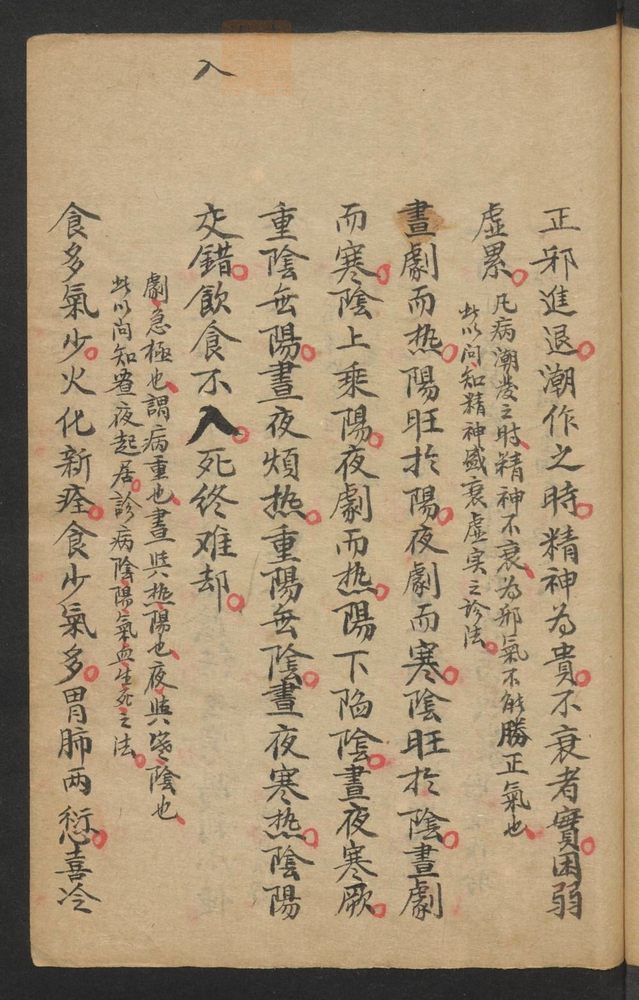 正邪進退。潮作之時。精神為貴。不衰者實。困弱
虛累。凡病潮發之時、精神不衰、為邪氣不能勝正氣也、
此以問知精神盛衰虛实之診法。
晝劇而热。陽旺於陽。夜劇而寒。陰旺於陰。晝劇
而寒。陰上乘陽。夜劇而热。陽下陷陰。晝夜寒厥。
重陰無陽。晝夜煩热。重陽無陰。晝夜寒热。陰陽
交錯。飲食不入。死終难却。
入
劇、急極也、謂病重也、晝與热、陽也、夜與寒、陰也、
此以問知晝夜起居。診病陰陽氣血生死之法。
食多氣少。火化新痊。食少氣多。胃肺两愆。喜冷